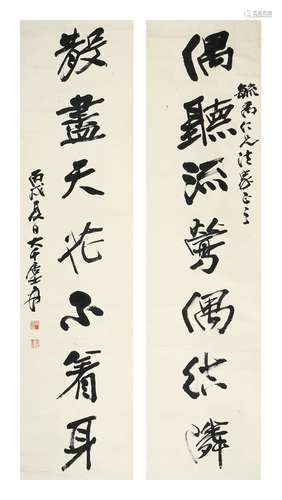 仁兄法家正之
偶聽流鶯偶結隣
散盡天花不着身
丙戌夏日大千居士爰